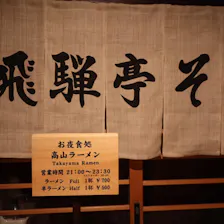 飛騨亭そ
お夜食処
高山ラーメン
Takayama Ramen
営業時間 21:00〜23:30
ラーメン Full 1杯 ¥700
半ラーメン Half 1杯 ¥